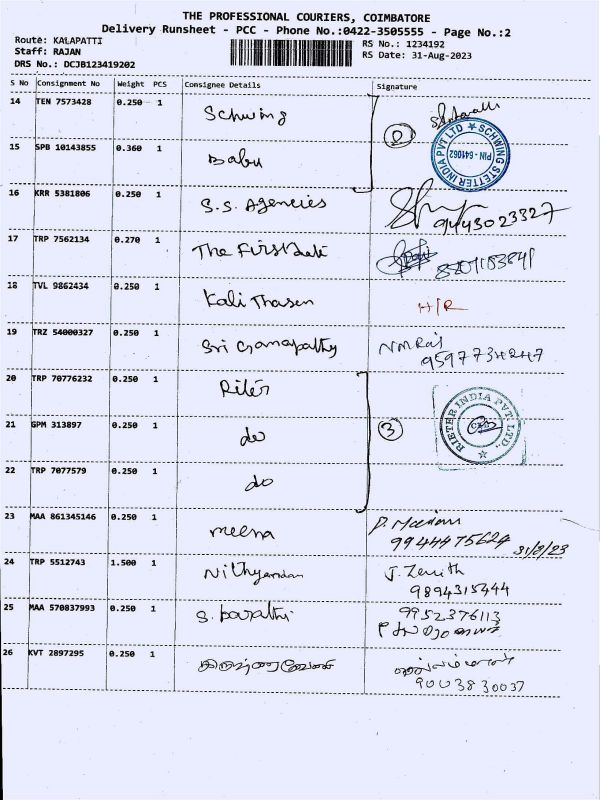 THE PROFESSIONAL COURIERS, COIMBATORE
Delivery Runsheet - PCC - Phone No.:0422-3505555 - Page No.:2
Route: KALAPATTI
Staff: RAJAN
DRS No.: DCJB123419202
RS No.: 1234192
RS Date: 31-Aug-2023
S No Consignment No Weight PCS Consignee Details Signature
14 TEN 7573428 0.250 1 Schwing
2
SCHWING STETTER INDIA PVT LTD
PIN - 641062
15 SPB 10143855 0.360 1 Babu
16 KRR 5381806 0.250 1 S.S. Agencies 9443023327
17 TRP 7562134 0.270 1 The First 8207183841
18 TVL 9862434 0.250 1 Kali Thasen H/R
19 TRZ 54000327 0.250 1 Sri Ganapathy NMRaj
9597734247
20 TRP 70776232 0.250 1 Riter
3
RIETER INDIA PVT. LTD.
21 GPM 313897 0.250 1 do
22 TRP 7077579 0.250 1 do
23 MAA 861345146 0.250 1 meena
9944475624 31/8/23
24 TRP 5512743 1.500 1 J. Zenith
9894315444
25 MAA 570837993 0.250 1 S. barathi 9952376113
26 KVT 2897295 0.250 1
9003830037